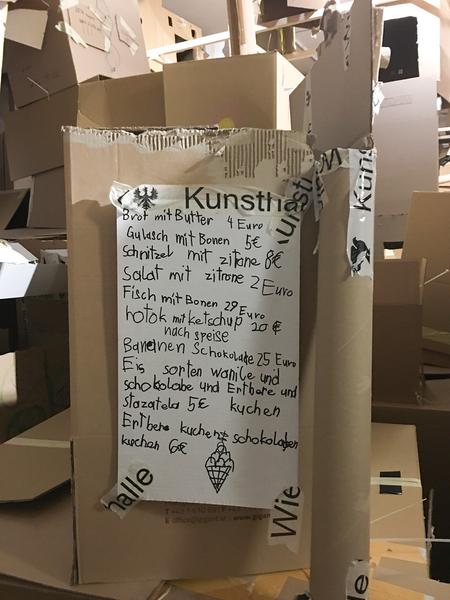 Kunstha
Brot mit Butter 4 Euro
Gulasch mit Bonen 5€
Schnitzel mit zitrone 8€
Salat mit zitrone 2 Euro
Fisch mit Bonen 29 Euro
hotok mit ketschup 20 €
nach speise
Bananen Schokolade 25 Euro
Eis sorten wanile und
schokolabe und Ertbere und
stazatela 5€ kuchen
Ertbere kuchen schokoladen
kuchen 6€
halle
Wie
Kuns